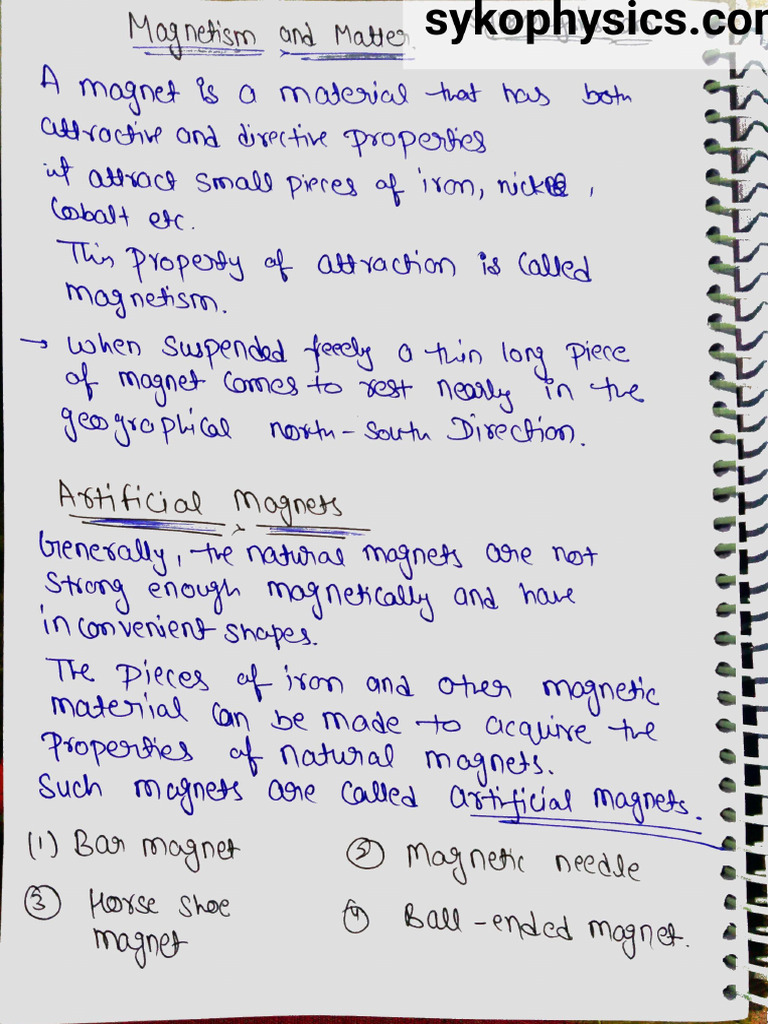 sykophysics.com
Magnetism and Matter
A magnet is a material that has both
attractive and directive properties
it attract small pieces of iron, nickle,
Cobalt etc.
This property of attraction is called
magnetism.
→ When suspended feeely a thin long piece
of magnet comes to rest nearly in the
geographical north-south Direction.
Artificial Magnets
Generally, the natural magnets are not
strong enough magnetically and have
inconvenient shapes.
The pieces of iron and other magnetic
material can be made to acquire the
properties of natural magnets.
Such magnets are called artificial magnets.
(1) Bar magnet ② Magnetic needle
③ Horse shoe ④ Ball-ended magnet.
magnet